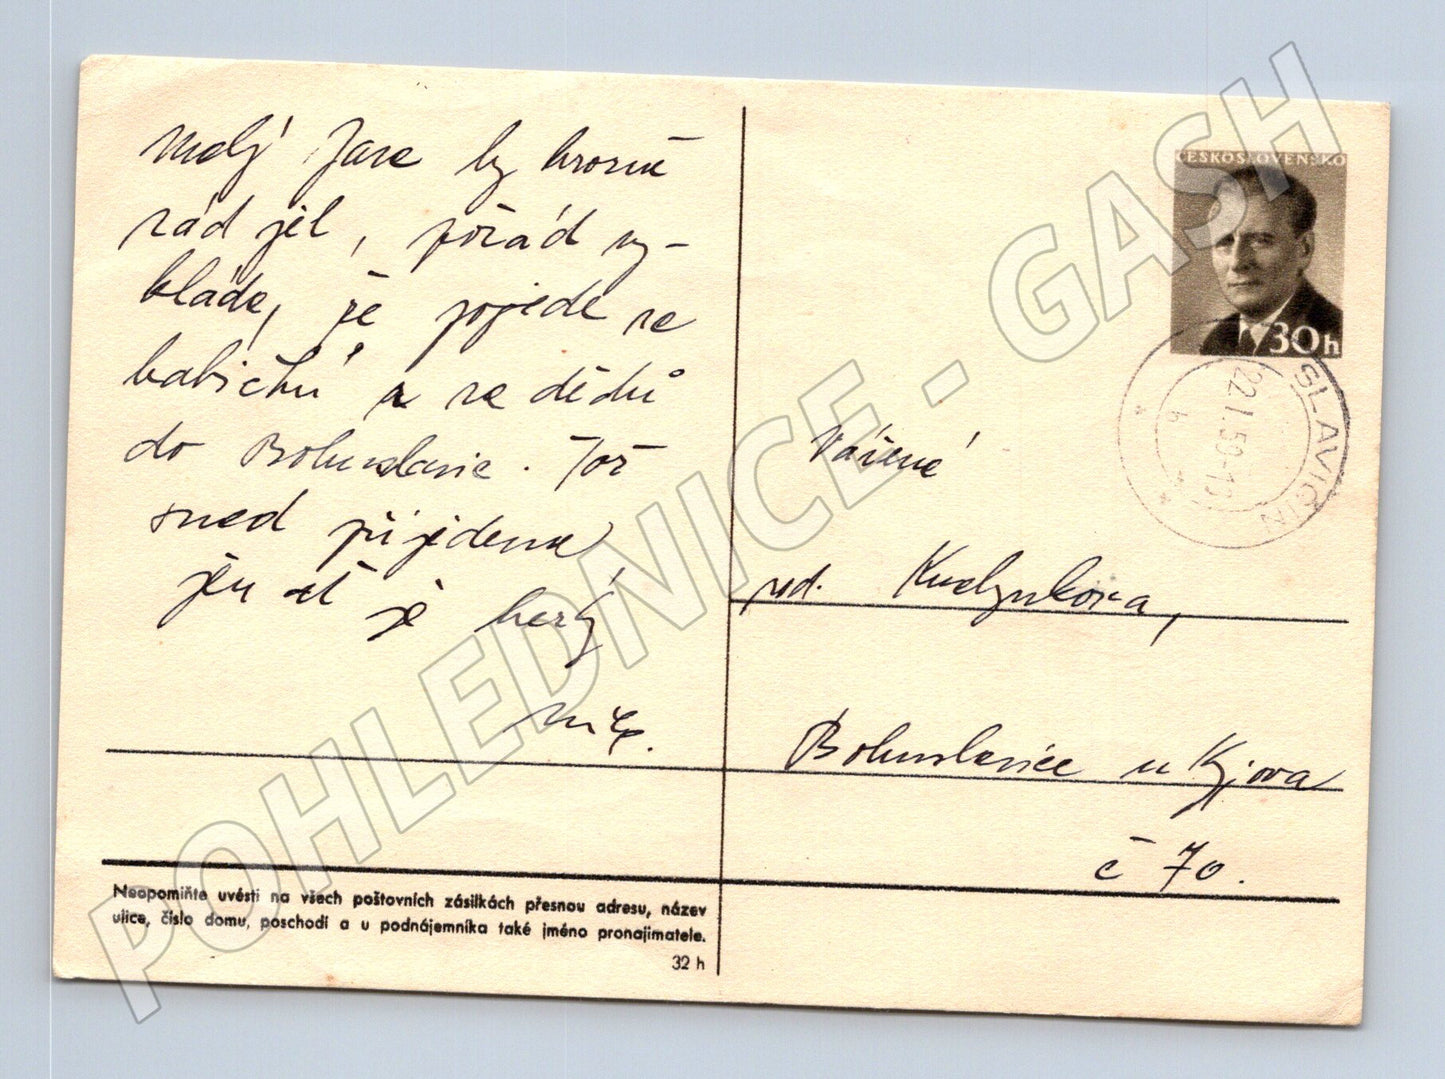 Malý Jara by hrozně
rád jel, pořád vy-
kládá, že pojede za
babičkú a za dědú
do Bohuslavic. Též
hned přijedeme
jen ať je hezky
Vážená
rod. Kudynkova,
Bohuslavice u Kyjova
č 70.
ČESKOSLOVENSKO
30h
SLAVIČÍN
22.I.59-13
b
Neopomiňte uvésti na všech poštovních zásilkách přesnou adresu, název
ulice, číslo domu, poschodí a u podnájemníka také jméno pronajimatele.
32 h
POHLEDNICE - GASH